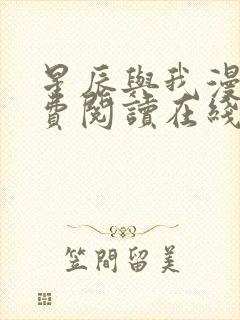 星辰與我漫
費閱讀在綫
笠間留美